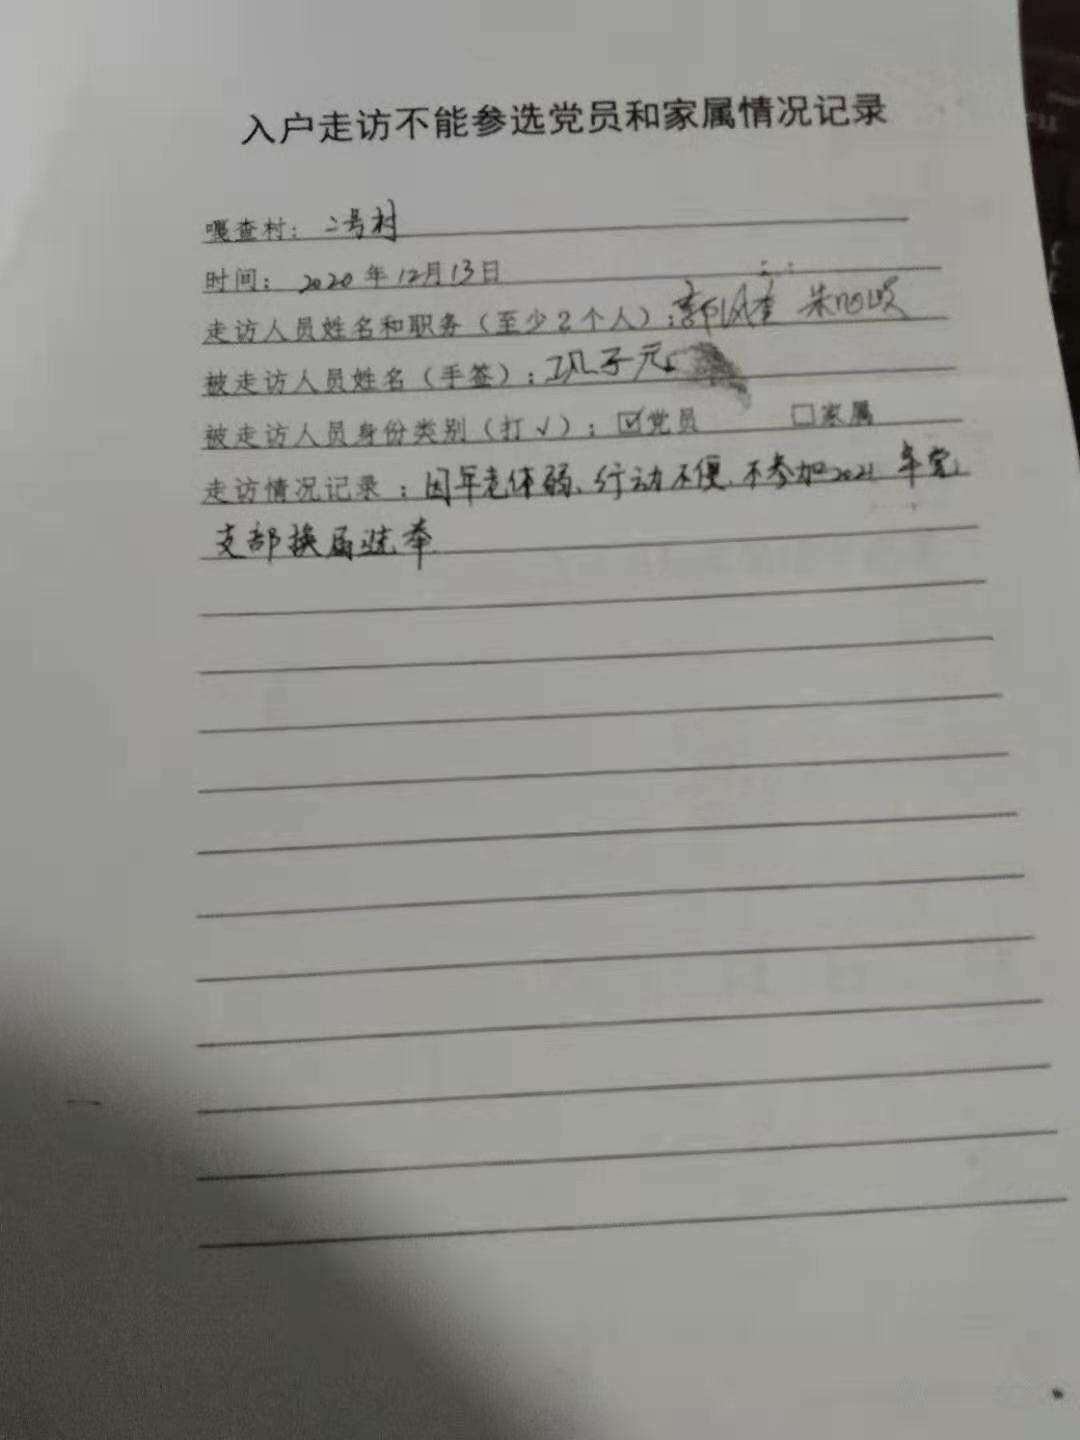 入户走访不能参选党员和家属情况记录
嘎查村：二号村
时间：2020年12月13日
走访人员姓名和职务（至少2个人）：郭凤奎 朱
被走访人员姓名（手签）：子元
被走访人员身份类别（打√）：☑党员 □家属
走访情况记录：因年老体弱、行动不便、不参加2021年党
支部换届选举